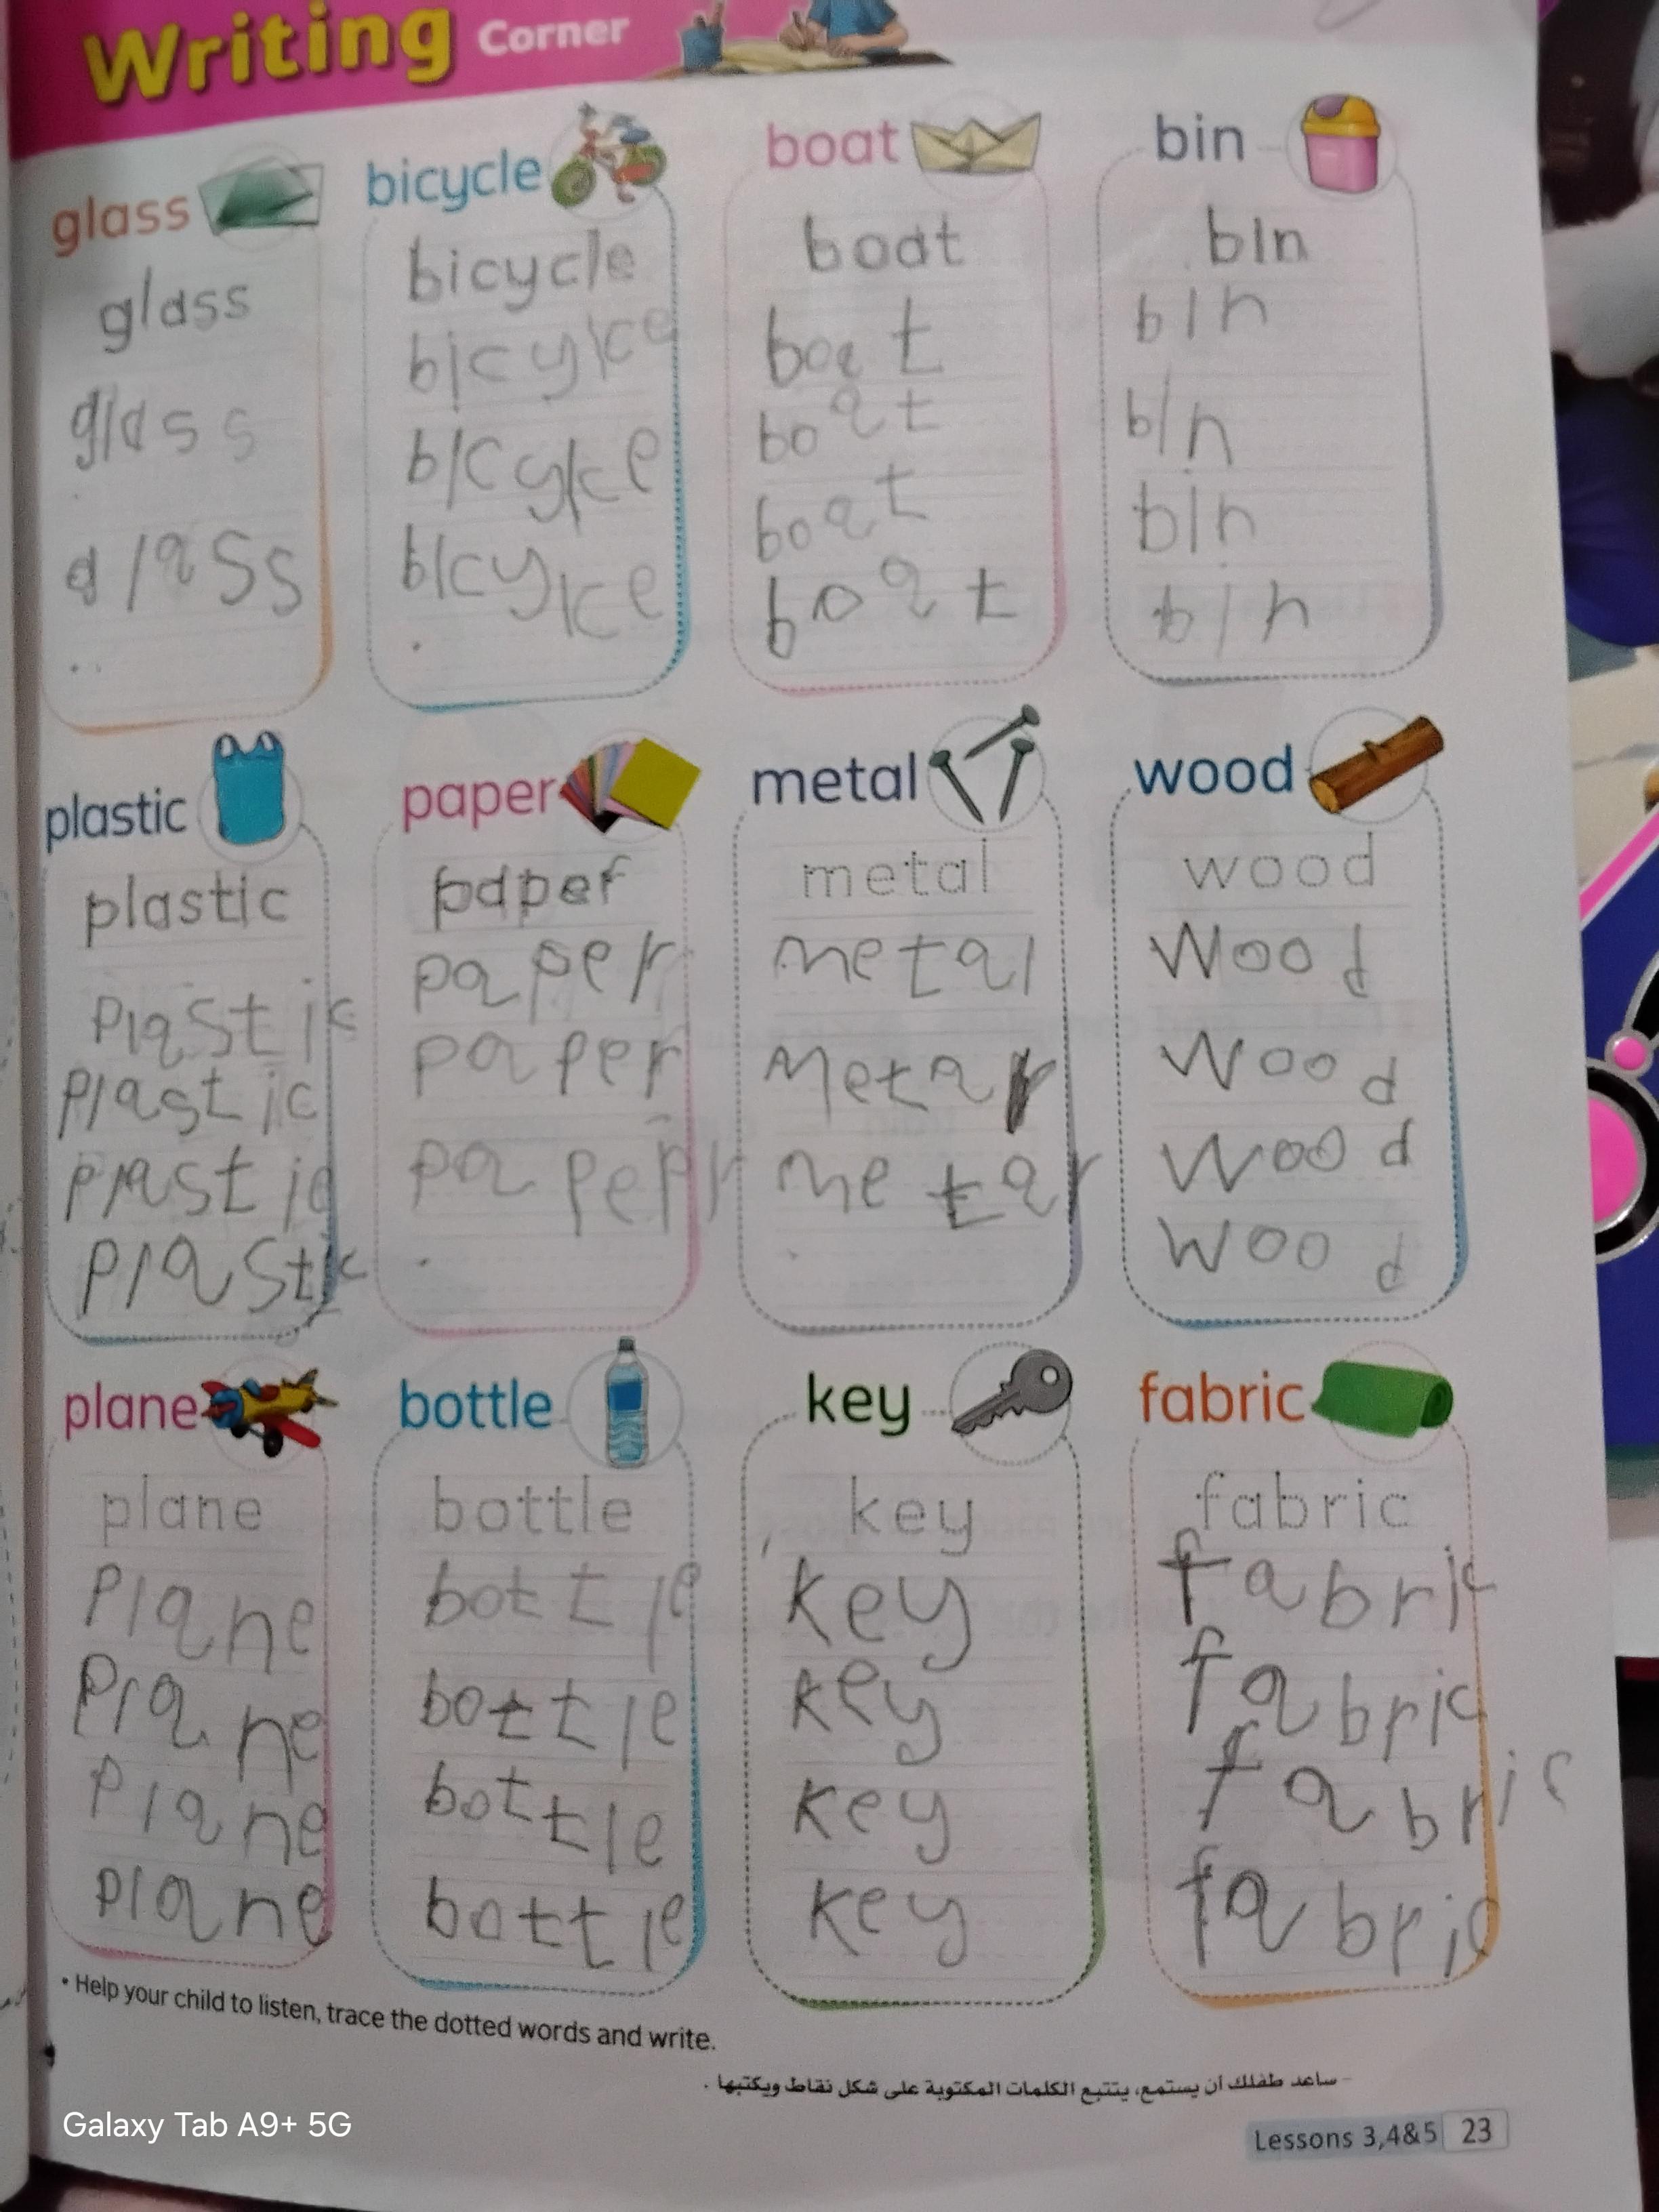 Writing Corner
glass
glass
glass
glass
bicycle
bicycle
bicylce
bicylce
bicylce
boat
boat
boat
boat
boat
boat
bin
bin
bin
bin
bin
bin
plastic
plastic
plastic
plastic
plastic
plastic
paper
paper
paper
paper
metal
metal
metal
wood
wood
wood
wood
wood
wood
plane
plane
plane
plane
plane
plane
bottle
bottle
bottle
bottle
bottle
bottle
key
key
key
key
key
key
fabric
fabric
fabric
fabric
fabric
fabric
• Help your child to listen, trace the dotted words and write.
- ساعد طفلك أن يستمع، يتتبع الكلمات المكتوبة على شكل نقاط ويكتبها .
Lessons 3,4&5 23
Galaxy Tab A9+ 5G